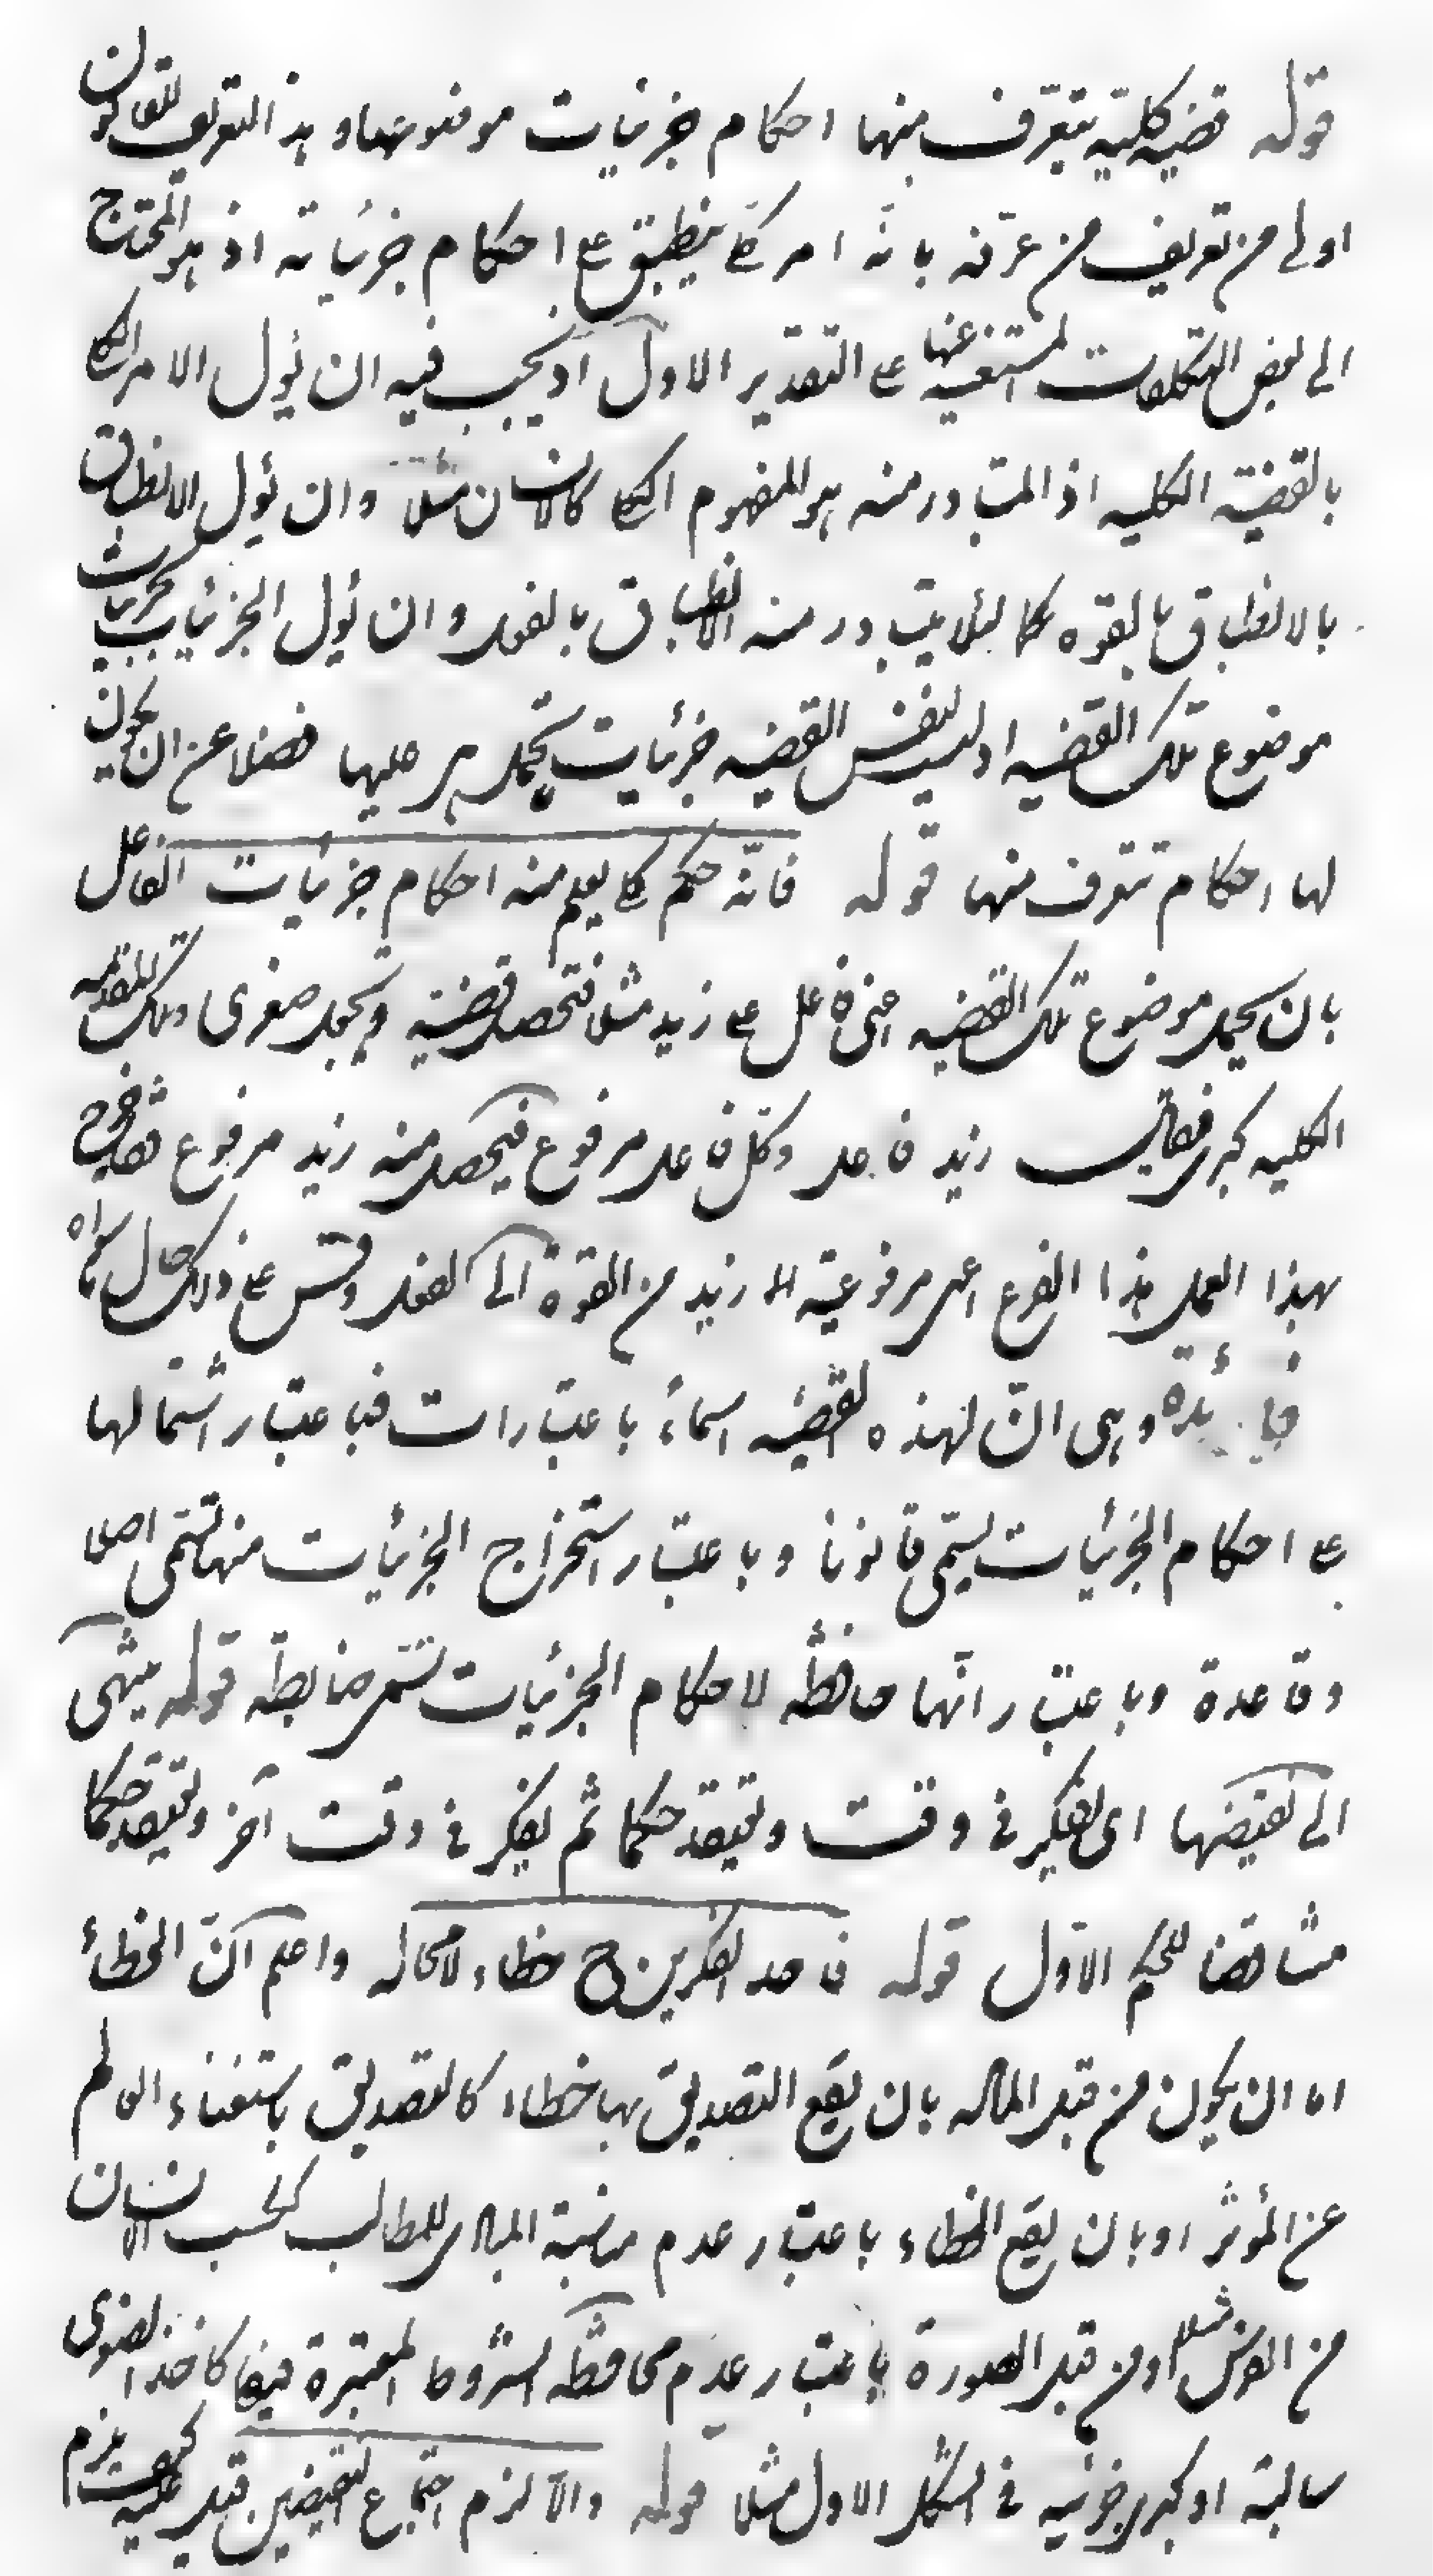 قوله قضية كلية يتعرف منها احكام جزئيات موضوعها وهذا التعريف للقانون
اولى من تعريف من عرفه بانه امر كلي ينطبق على احكام جزئياته اذ هو المحتاج
الى بعض التكلفات المستغنية عنها على التقدير الاول اذ يجب فيه ان يؤل الامر الكلي
بالقضية الكلية اذ المتبادر منه هو المفهوم الكلي كالانسان مثلا وان يؤل الانطباق
بالانطباق بالقوة كما لئلا يتبادر منه الانطباق بالفعل وان يؤل الجزئيات بجزئيات
موضوع تلك القضية اذ ليس لنفس القضية جزئيات تحمل هي عليها فضلا عن ان يكون
لها احكام تتعرف منها قوله فانه حكم كلي يعلم منه احكام جزئيات الفاعل
بان يحمل موضوع تلك القضية اعني فاعل على زيد مثلا فتحصل قضية وتجعل صغرى وتلك المقدمة
الكلية كبرى فيقال زيد فاعل وكل فاعل مرفوع فيحصل منه زيد مرفوع فقد خرج
بهذا العمل هذا الفرع اعني مرفوعية زيد من القوة الى الفعل وقس على ذلك حال سواه
فايدة وهي ان لهذه القضية اسماء باعتبارات فباعتبار اشتمالها
على احكام الجزئيات يسمى قانونا وباعتبار استخراج الجزئيات منها تسمى اصلا
وقاعدة وباعتبار انها حافظة لاحكام الجزئيات تسمى ضابطة قوله ينتهي
الى نقيضها اى يفكر في وقت ويعتقد حكما ثم يفكر في وقت آخر ويعتقد حكما
مناقضا للحكم الاول قوله فاحد الفكرين ح خطاء لا محالة واعلم ان الخطأ
اما ان يكون من قبل المادة بان يقع التصديق بها خطاء كالتصديق باستغناء العالم
عن المؤثر او بان يقع الخطاء باعتبار عدم مناسبة المبادى للمطالب كسب الانسان
من الفرس مثلا او من قبل الصورة باعتبار عدم محافظة الشروط المعتبرة فيها كاخذ الصغرى
سالبة او كبرى جزئية في الشكل الاول مثلا قوله والا لزم اجتماع النقيضين قيل عليه كيف يلزم